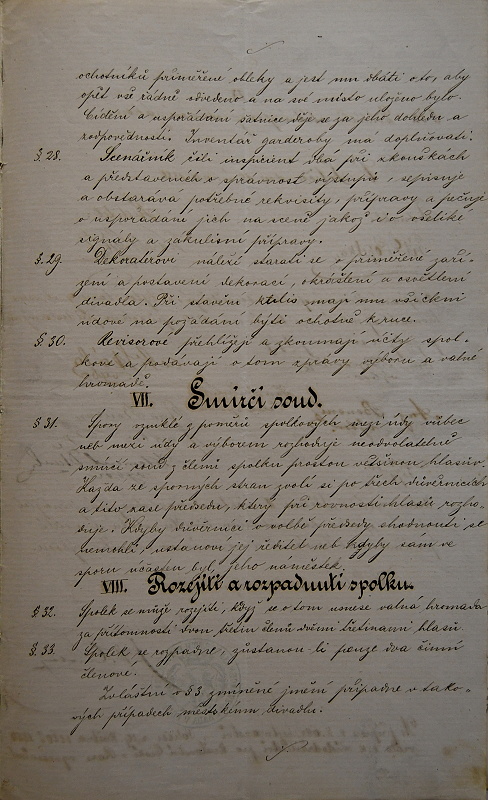 ochotníků přiměřené obleky a jest mu dbáti o to, aby
opět vše řádně odvedeno a na své místo uloženo bylo.
Čídění a uspořádání šatnice děje se za jeho dohledu a
zodpovědnosti. Inventář garderoby má doplňovati.
§. 28. Scenárník čili inspicient dbá při zkouškách
a představeních o správnost výstupů, sepisuje
a obstarává potřebné rekvisity, přípravy a pečuje
o uspořádání jich na scéně jakož i o veškeré
signály a zákulisní přípravy.
§. 29 Dekoratérovi náleží starati se o přiměřené zaří-
zení a postavení dekorací, okrášlení a osvětlení
divadla. Při stavění kulis mají mu všickni
údové na požádání býti ochotně k ruce.
§ 30. Revisorové přehlížejí a zkoumají účty spol-
kové a podávají o tom zprávy výboru a valné
hromadě.
VII. Smírčí soud.
§ 31. Spory vzniklé z poměrů spolkových mezi údy vůbec
neb mezi údy a výborem rozhoduje neodvolatelně
smírčí soud z členů spolku prostou většinou hlasův.
Každá ze sporných stran zvolí si po třech důvěrnících
a tito zase předsedu, který při rovnosti hlasů rozho-
duje. Kdyby důvěrníci o volbě předsedy shodnouti se
nemohli, ustanoví jej ředitel neb kdyby sám ve
sporu účasten byl, jeho náměstek.
VIII. Rozejití a rozpadnutí spolku.
§ 32. Spolek se může rozejíti, když se o tom usnese valná hromada
za přítomnosti dvou třetin členů dvěmi třetinami hlasů.
§. 33. Spolek se rozpadne, zůstanou-li pouze dva činní
členové.
Zvláštní v § 3 zmíněné jmění připadne v tako-
vých případech městskému divadlu.